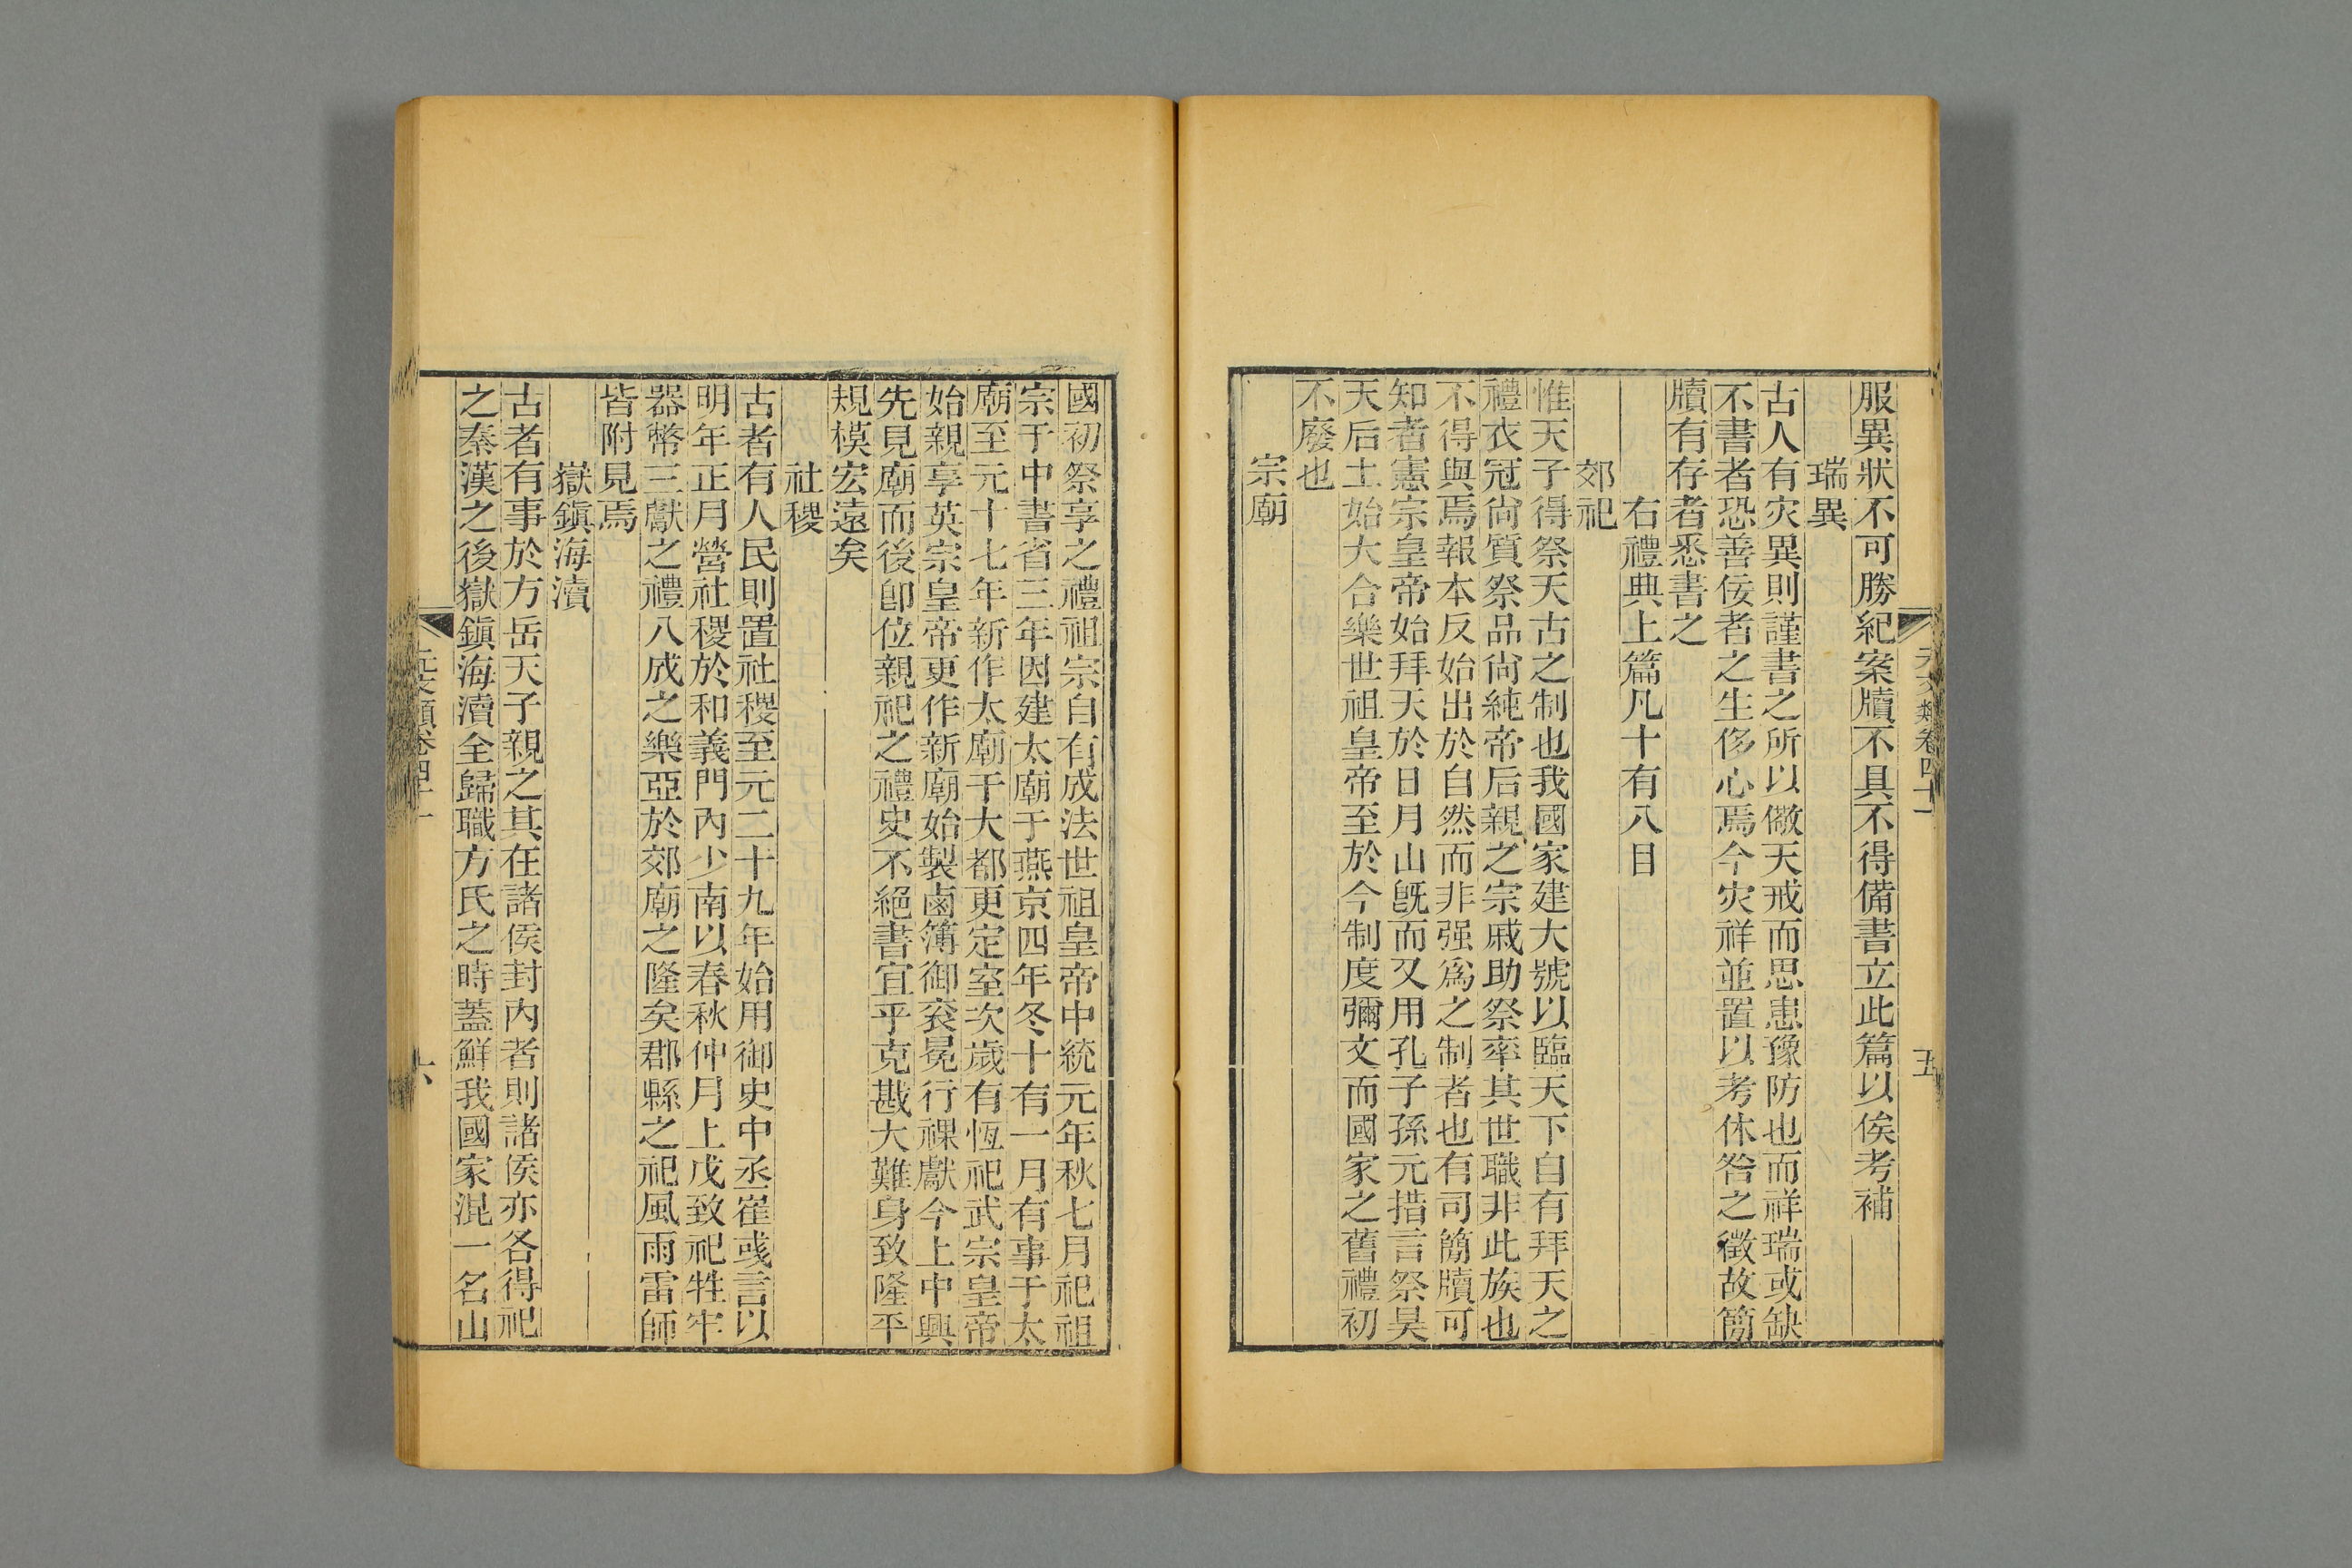 元文類卷四十一
五
服異狀不可勝紀案牘不具不得備書立此篇以俟考補
瑞異
古人有灾異則謹書之所以儆天戒而思患豫防也而祥瑞或缺
不書者恐善佞者之生侈心焉今灾祥並置以考休咎之徵故簡
牘有存者悉書之
右禮典上篇凡十有八目
郊祀
惟天子得祭天古之制也我國家建大號以臨天下自有拜天之
禮衣冠尙質祭品尙純帝后親之宗戚助祭率其世職非此族也
不得與焉報本反始出於自然而非强爲之制者也有司簡牘可
知者憲宗皇帝始拜天於日月山旣而又用孔子孫元措言祭昊
天后土始大合樂世祖皇帝至於今制度彌文而國家之舊禮初
不廢也
宗廟
國初祭享之禮祖宗自有成法世祖皇帝中統元年秋七月祀祖
宗于中書省三年因建太廟于燕京四年冬十有一月有事于太
廟至元十七年新作太廟于大都更定室次歲有恆祀武宗皇帝
始親享英宗皇帝更作新廟始製鹵簿御衮冕行祼獻今上中興
先見廟而後卽位親祀之禮史不絕書宜乎克戡大難身致隆平
規模宏遠矣
社稷
古者有人民則置社稷至元二十九年始用御史中丞崔彧言以
明年正月營社稷於和義門內少南以春秋仲月上戊致祀牲牢
器幣三獻之禮八成之樂亞於郊廟之隆矣郡縣之祀風雨雷師
皆附見焉
嶽鎭海瀆
古者有事於方岳天子親之其在諸侯封內者則諸侯亦各得祀
之秦漢之後嶽鎭海瀆全歸職方氏之時蓋鮮我國家混一名山
元文類卷四十一
六